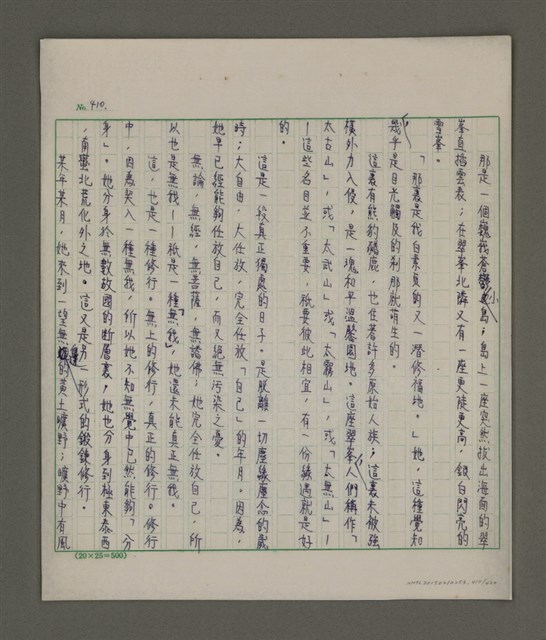 No. 410.
那是一個巍峩蒼鬱小島;島上一座突然拔出海面的翠
峯直插雲表;在翠峯北隣又有一座更陡更高,銀白閃亮的
雪峯。
「那裏是我白素貞的又一潛修福地。」她,這種覺知
幾乎是目光觸及的刹那就萌生的。
這裏有熊豹麋鹿,也住著許多原始人族;這裏未被強
橫外力入侵,是一塊和平溫馨園地。這座翠峯人們稱作「
太古山」,或「太武山」或「太霧山」,或「太無山」—
—這些名目並不重要,祇要彼此相宜,有一份緣遇就是好
的。
這是一段真正獨處的日子。是脫離一切塵緣塵念的歲
時;大自由,大任放,完全任放「自己」的年月。因為,
她早已經能夠任放自己,而又絕無污染之憂。
無論,無經,無菩薩,無諸佛;她完全任放自己,所
以也是無我——祇是一種「無我」,她還未能真正無我。
這,也是一種修行。無上的修行,真正的修行。修行
中,因為契入一種無我,所以她不知無覺中已然能夠「分
身」。她分身於無數故國的斷層裏,她也分身到極東泰西
,南蠻北荒化外之地。這又是另一形式的鍛鍊修行。
某年某月,她來到一望無邊的黃土曠野;曠野中有風
(20×25=500)